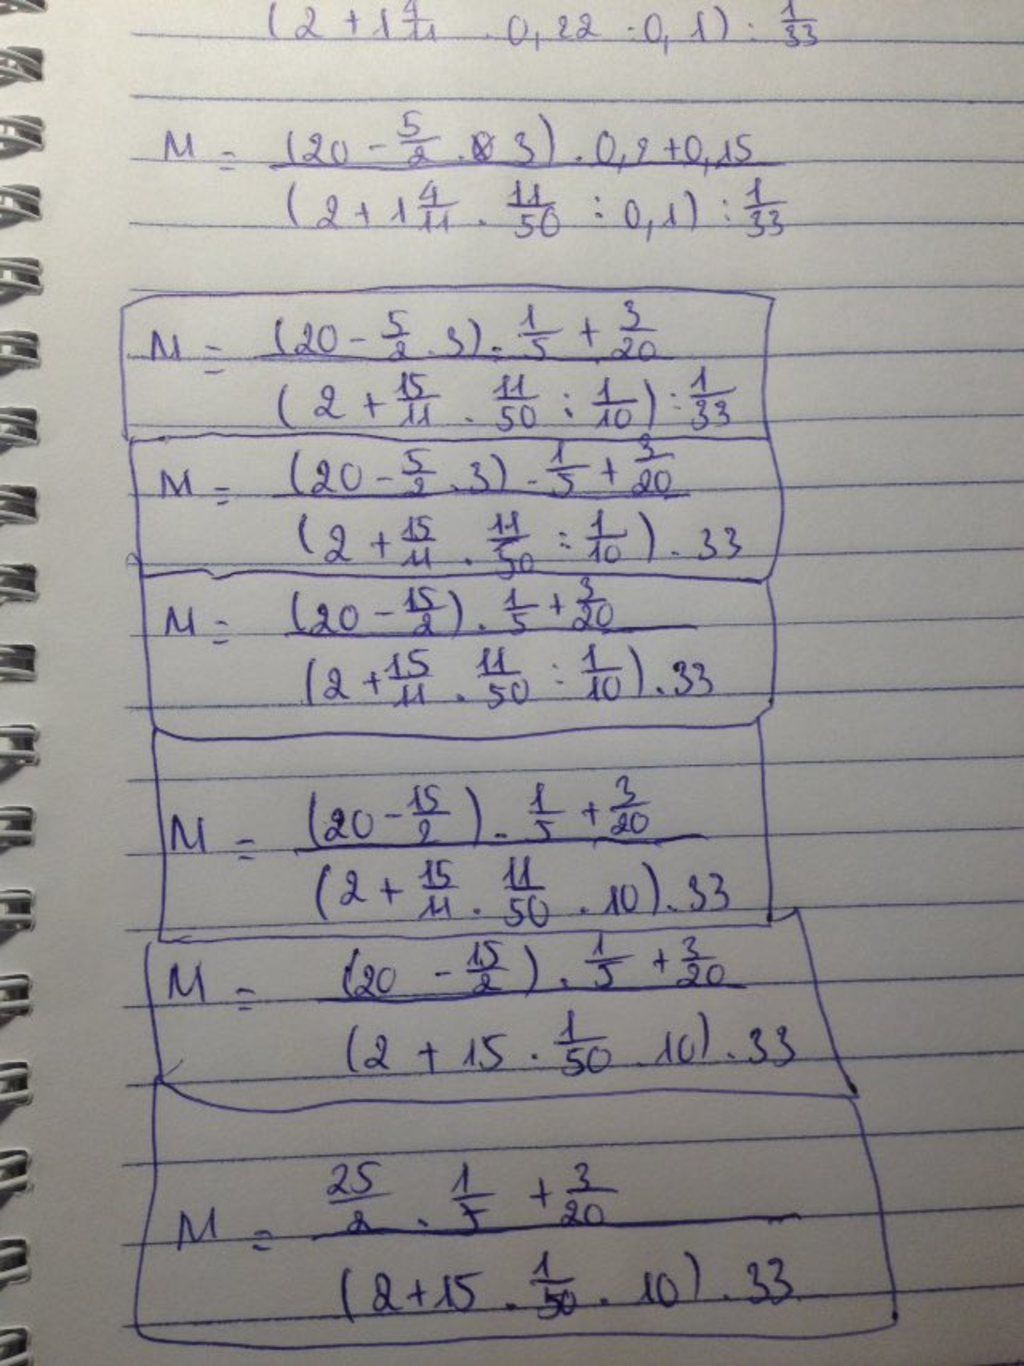 (2 + 1 4/11 . 0,22 : 0,1) : 1/33
M = (20 - 5/2 . 3) . 0,2 + 0,15
(2 + 1 4/11 . 11/50 : 0,1) : 1/33
M = (20 - 5/2 . 3) . 1/5 + 3/20
(2 + 15/11 . 11/50 : 1/10) : 1/33
M = (20 - 5/2 . 3) . 1/5 + 3/20
(2 + 15/11 . 11/50 : 1/10) . 33
M = (20 - 15/2) . 1/5 + 3/20
(2 + 15/11 . 11/50 : 1/10) . 33
M = (20 - 15/2) . 1/5 + 3/20
(2 + 15/11 . 11/50 . 10) . 33
M = (20 - 15/2) . 1/5 + 3/20
(2 + 15 . 1/50 . 10) . 33
M = 25/2 . 1/5 + 3/20
(2 + 15 . 1/50 . 10) . 33